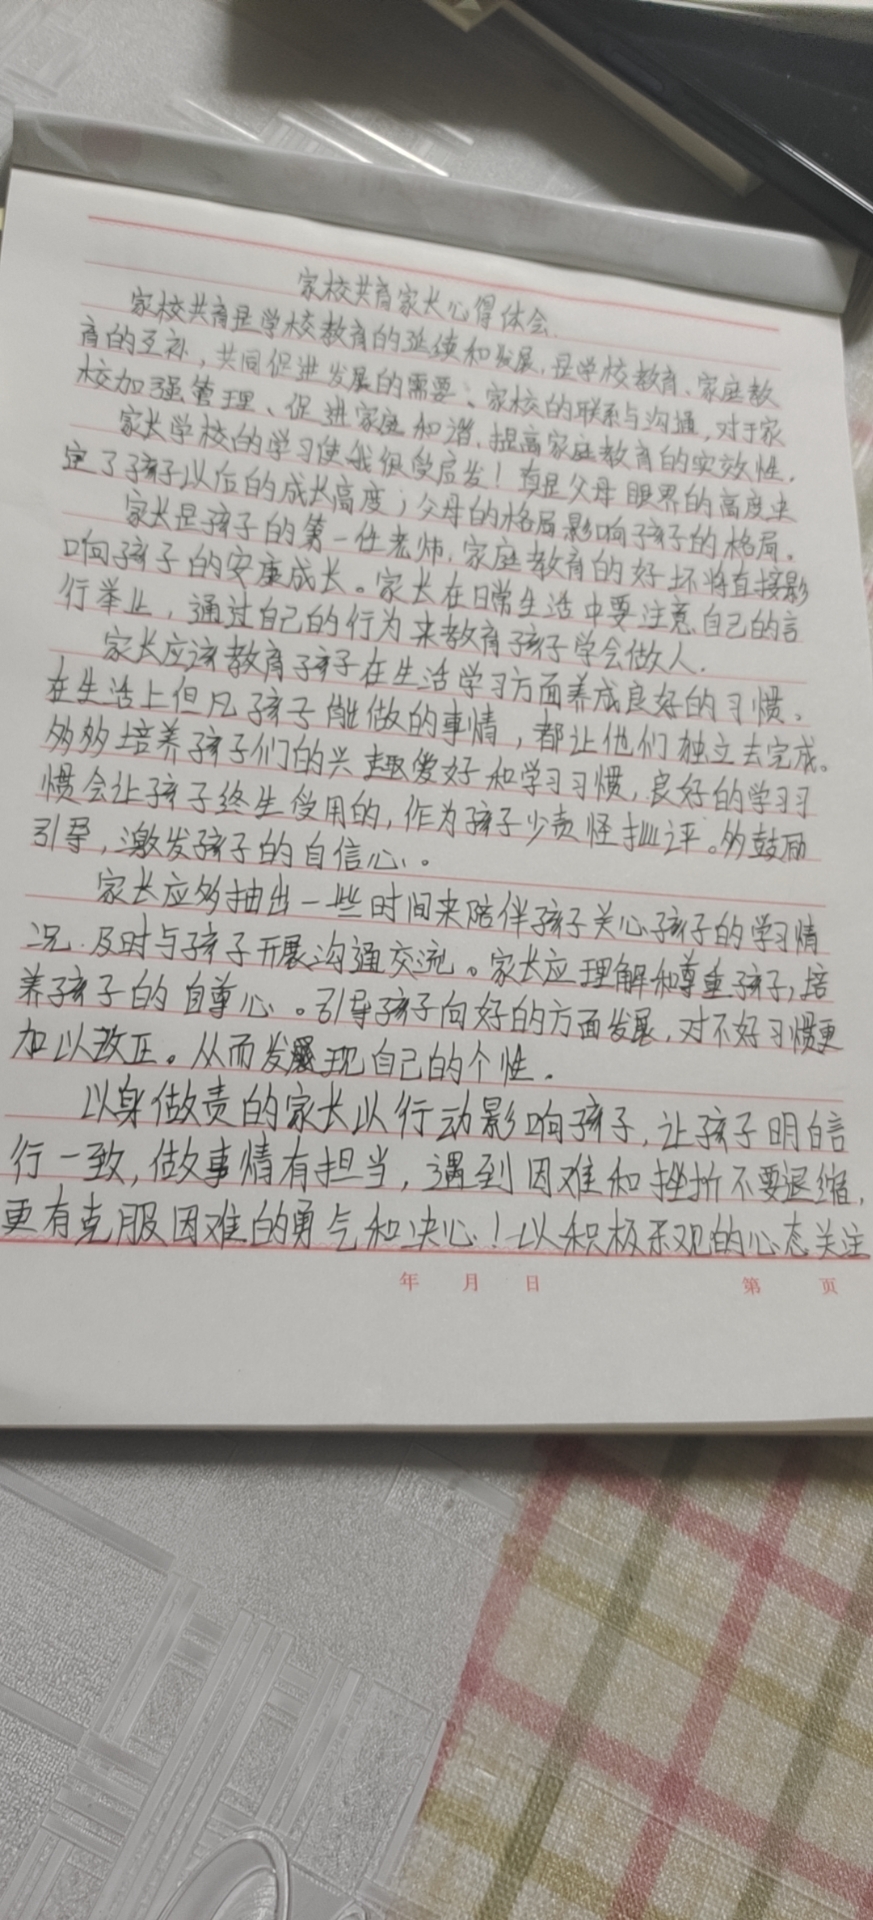 家校共育家长心得体会.
家校共育是学校教育的延续和发展,是学校教育、家庭教
育的互补,共同促进发展的需要;家校的联系与沟通,对于家
校加强管理、促进家庭和谐,提高家庭教育的实效性.
家长学校的学习使我很受启发!真是父母眼界的高度决
定了孩子以后的成长高度;父母的格局影响孩子的格局.
家长是孩子的第一任老师,家庭教育的好坏将直接影
响孩子的安康成长。家长在日常生活中要注意自己的言
行举止,通过自己的行为来教育孩子学会做人.
家长应该教育孩子在生活学习方面养成良好的习惯。
在生活上但凡孩子能做的事情,都让他们独立去完成。
多多培养孩子们的兴趣爱好和学习习惯,良好的学习习
惯会让孩子终生受用的,作为孩子少责怪批评。多鼓励
引导,激发孩子的自信心。
家长应多抽出一些时间来陪伴孩子关心孩子的学习情
况.及时与孩子开展沟通交流。家长应理解和尊重孩子,培
养孩子的自尊心。引导孩子向好的方面发展,对不好习惯更
加以改正。从而发展现自己的个性.
以身做责的家长以行动影响孩子,让孩子明白言
行一致,做事情有担当,遇到困难和挫折不要退缩,
更有克服困难的勇气和决心!以积极乐观的心态关注
年 月 日 第 页